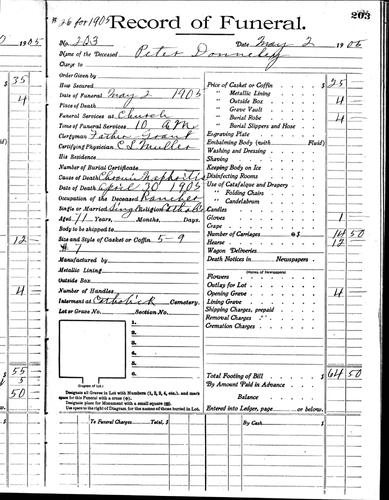 # 26 for 1905
Record of Funeral.
203
No. 203
Date May 2 1905
Name of the Deceased Peter Donneley
Charge to
Order Given by
How Secured
Date of Funeral May 2 1905
Place of Death
Funeral Services at Church
Time of Funeral Services 10 A.M.
Clergyman Father Grant
Certifying Physician C S Muller
His Residence
Number of Burial Certificate
Cause of Death Chronic Nephritis
Date of Death April 30 1905
Occupation of the Deceased Rancher
Single or Married Single Religion Catholic
Aged 71 Years, Months, Days.
Body to be shipped to
Size and Style of Casket or Coffin 5-9
# 7
Manufactured by
Metallic Lining
Outside Box
Number of Handles
Interment at Catholick Cemetery.
Lot or Grave No. Section No.
1.
2.
3.
4.
5.
6.
(Diagram of Lot.)
Designate all Graves in Lot with Numbers (1, 2, 3, 4, etc.), and mark
space for this Funeral with a cross (+).
Designate place for Monument with a small square
Use space to the right of Diagram for the names of those buried in Lot.
To Funeral Charges Total, $
Price of Casket or Coffin $ 25
" Metallic Lining
" Outside Box 4
" Grave Vault
" Burial Robe 4
" Burial Slippers and Hose
Engraving Plate
Embalming Body (with Fluid)
Washing and Dressing
Shaving
Keeping Body on Ice
Disinfecting Rooms
Use of Catafalque and Drapery
" Folding Chairs
" Candelabrum
Candles
Gloves 1
Crape
Number of Carriages @$ 14 50
Hearse 12
Wagon Deliveries
Death Notices in Newspapers
(Names of Newspapers)
Flowers
Outlay for Lot
Opening Grave 4
Lining Grave
Shipping Charges, prepaid
Removal Charges
Cremation Charges
Total Footing of Bill $ 64 50
By Amount Paid in Advance
Balance
Entered into Ledger, page or below.
By Cash $
1905
$ 35
4
12
4
$ 55
5
50